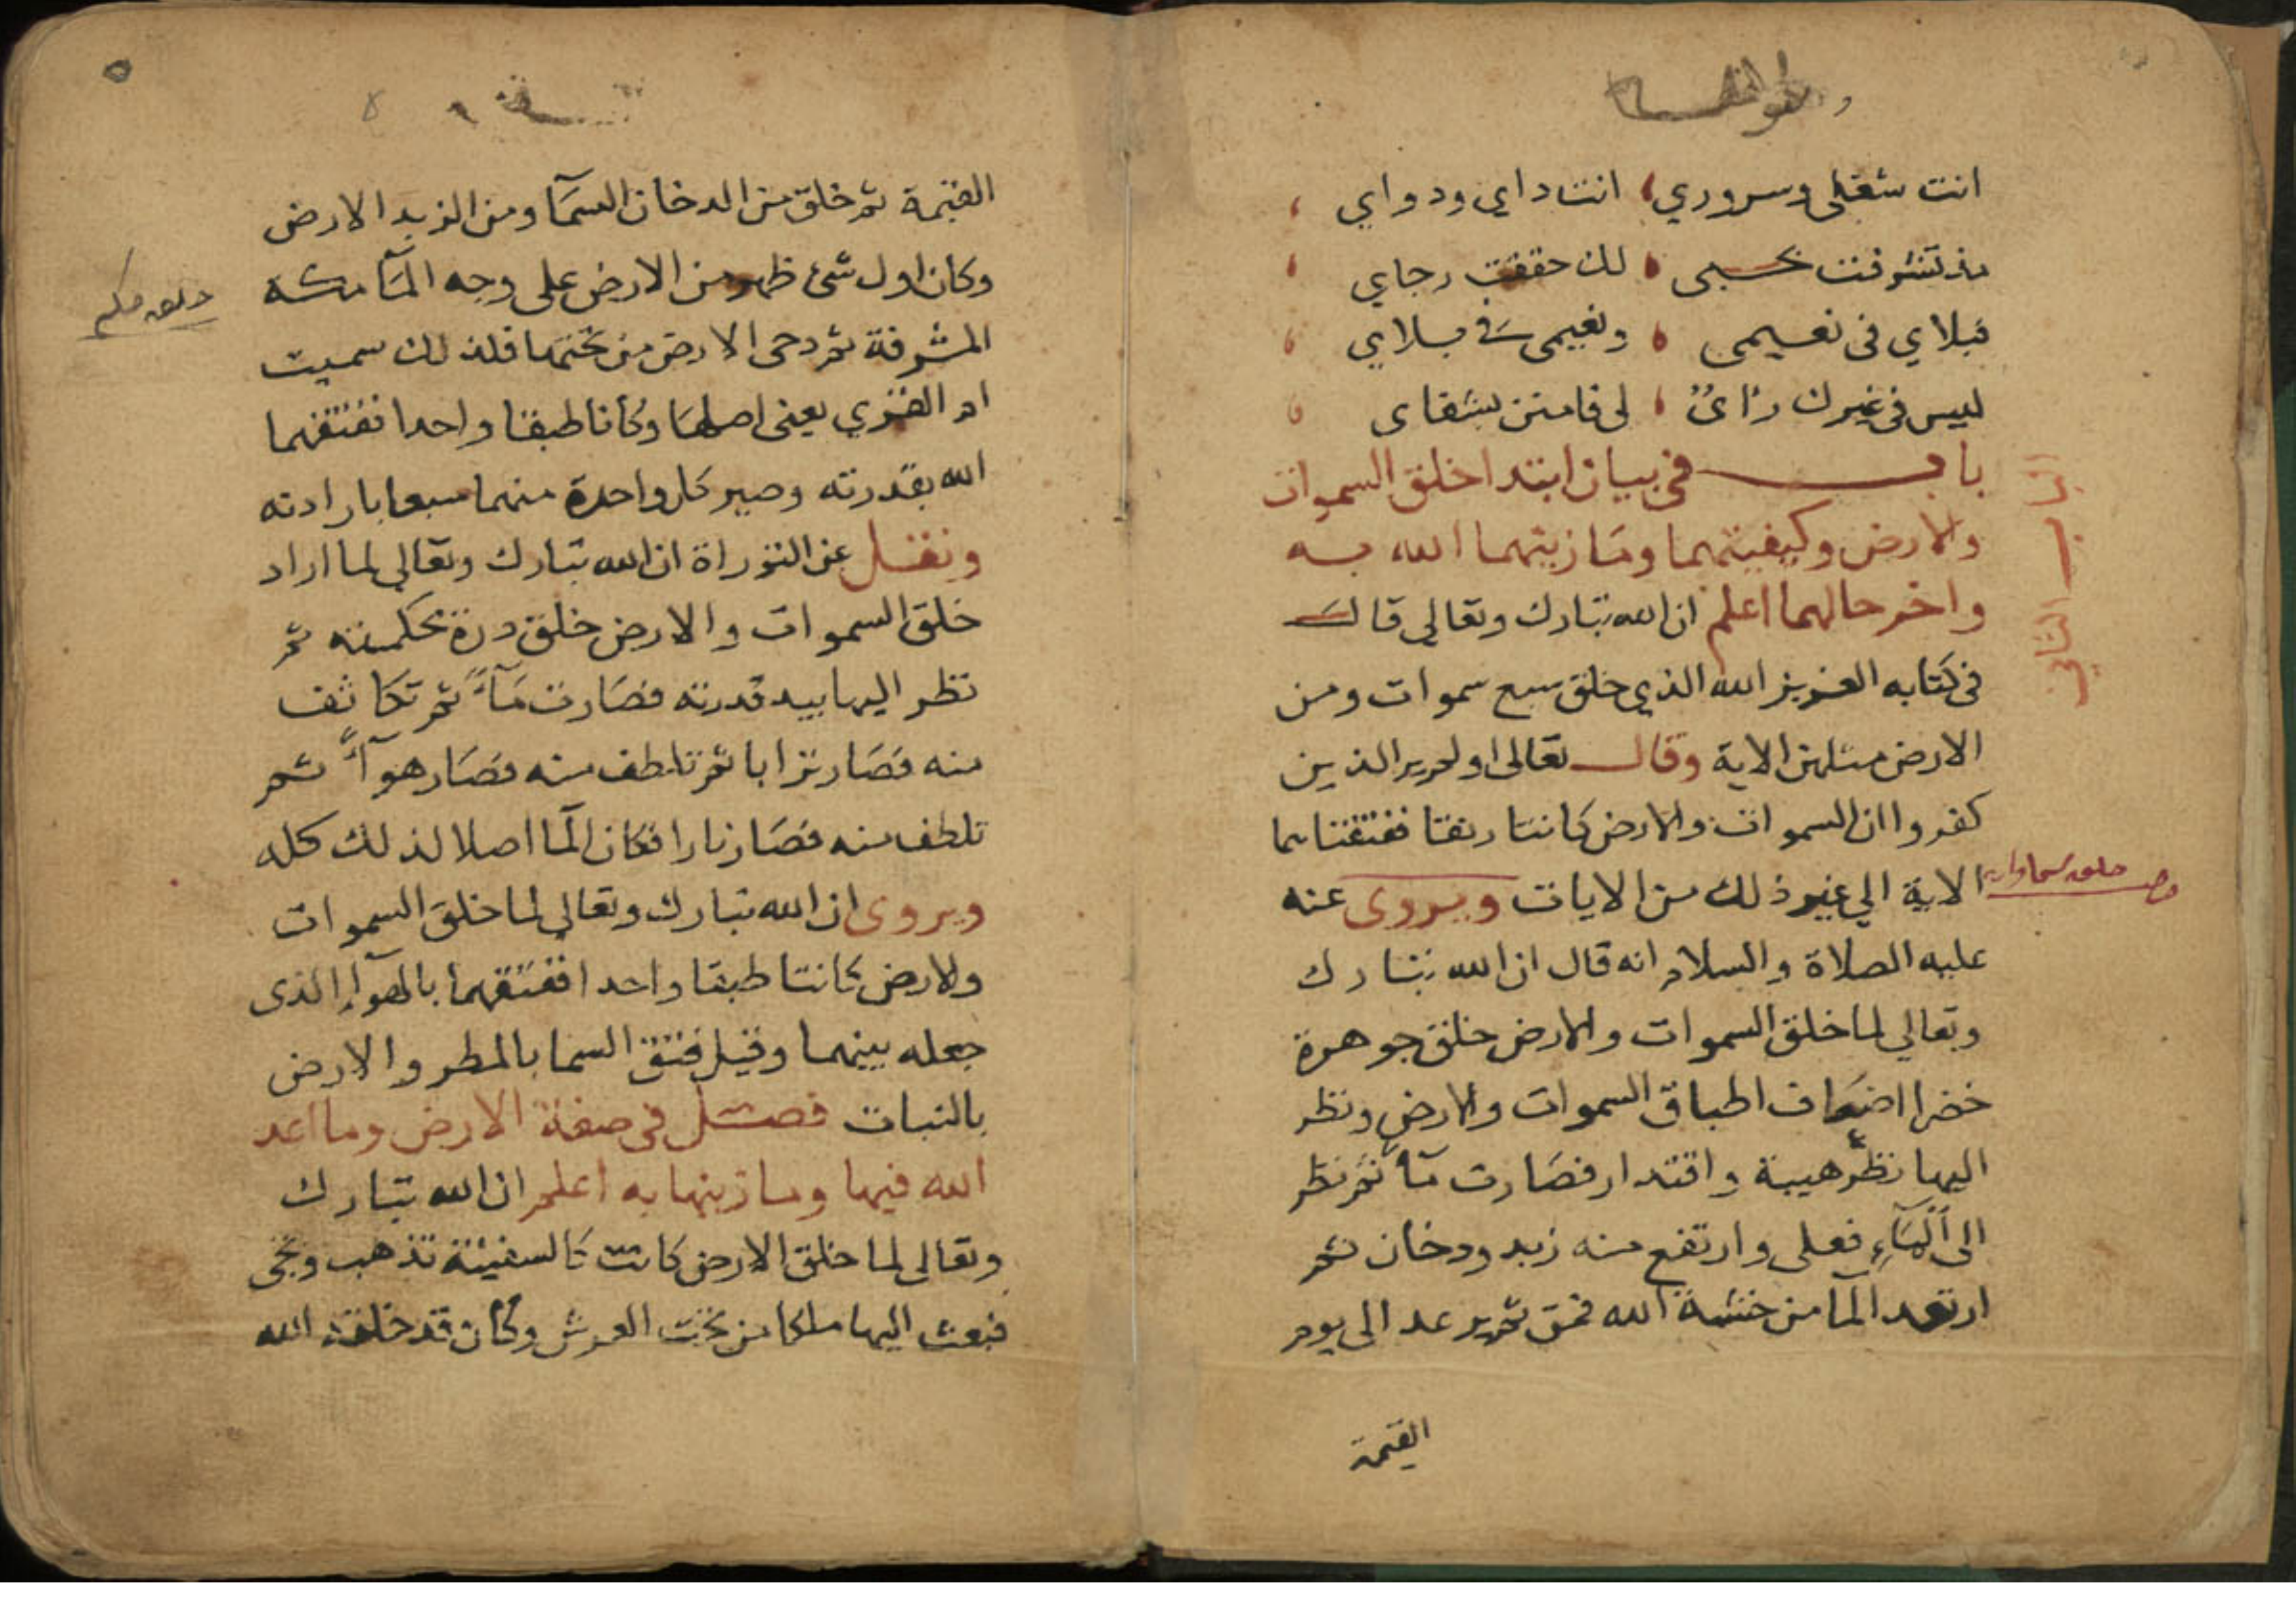 انت شغلي وسروري انت داي ودواي
مذ تشرفت بحسبى لك حققت رجاي
فبلاي فى نعيمى ونعيمى فى بلاي
ليس فى غيرك رائ لى فامنن بشفاى
باب فى بيان ابتدا خلق السموات
والارض وكيفيتهما وما زينهما الله به
واخر حالهما اعلم ان الله تبارك وتعالى قال
فى كتابه العزيز الله الذي خلق سبع سموات ومن
الارض مثلهن الاية وقال تعالى اولم ير الذين
كفروا ان السموات والارض كانتا رتقا ففتقناهما
الاية الي غير ذلك من الايات ويروى عنه
عليه الصلاة والسلام انه قال ان الله تبارك
وتعالي لما خلق السموات والارض خلق جوهرة
خضرا اضعاف اطباق السموات والارض ونظر
اليها نظر هيبة واقتدار فصارت مآء ثم نظر
الى المآء فعلى وارتفع منه زبد ودخان ثم
ارتعد المآ من خشية الله فمن ثم يرعد الى يوم
القيمة
الباب الثاني
خلق سماوات
القيمة ثم خلق من الدخان السمآ ومن الزبد الارض
وكان اول شئ ظهر من الارض على وجه المآ مكة
المشرفة ثم دحى الارض من تحتها فلذلك سميت
ام القري يعنى اصلها وكانا طبقا واحدا ففتقهما
الله بقدرته وصير كل واحدة منهما سبعا بارادته
ونقل عن التوراة ان الله تبارك وتعالي لما اراد
خلق السموات والارض خلق درة بحكمته ثم
نظر اليها بيد قدرته فصارت مآءً ثم تكاثف
منه فصار ترابا ثم تلطف منه فصار هوآءً ثم
تلطف منه فصار نارا فكان المآ اصلا لذلك كله
ويروى ان الله تبارك وتعالي لما خلق السموات
ولارض كانتا طبقا واحدا ففتقهما بالهوآء الذى
جعله بينهما وقيل فتق السما بالمطر والارض
بالنبات فصل فى صفة الارض وما اعد
الله فيها وما زينها به اعلم ان الله تبارك
وتعالى لما خلق الارض كانت كالسفينة تذهب وتجى
فبعث اليها ملكا من تحت العرش وكان قد خلقه الله
خلق مكه